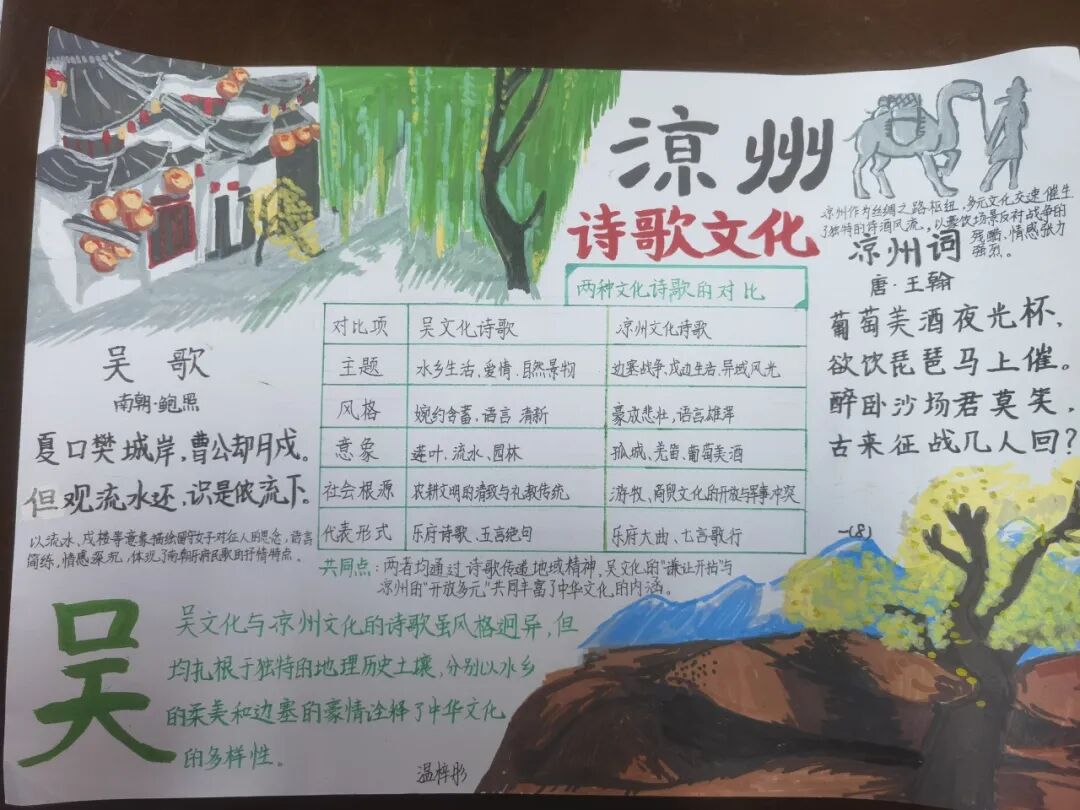 凉州
诗歌文化
凉州作为丝绸之路枢纽,多元文化交速催生
了独特的诗酒风流,以豪饮场景反衬战争的
残酷、情感张力
强烈。
凉州词
唐·王翰
葡萄美酒夜光杯,
欲饮琵琶马上催。
醉卧沙场君莫笑,
古来征战几人回?
两种文化诗歌的对比
对比项 吴文化诗歌 凉州文化诗歌
主题 水乡生活、爱情、自然景物 边塞战争、戍边生活、异域风光
风格 婉约含蓄、语言 清新 豪放悲壮、语言雄浑
意象 莲叶、流水、园林 孤城、羌笛、葡萄美酒
社会根源 农耕文明的清致与礼教传统 游牧、商贸文化的开放与军事冲突
代表形式 乐府诗歌、五言绝句 乐府大曲、七言歌行
共同点:两者均通过诗歌传递地域精神,吴文化的“谦让开拓”与
凉州的“开放多元”共同丰富了中华文化的内涵。
吴歌
南朝·鲍照
夏口樊城岸,曹公却月戍。
但观流水还,识是侬流下。
以流水、戍楼等意象描绘留守女子对征人的思念,语言
简练,情感深沉,体现了南朝乐府民歌的抒情特点。
吴
吴文化与凉州文化的诗歌虽风格迥异,但
均扎根于独特的地理历史土壤,分别以水乡
的柔美和边塞的豪情诠释了中华文化
的多样性。
温梓彤
一(8)